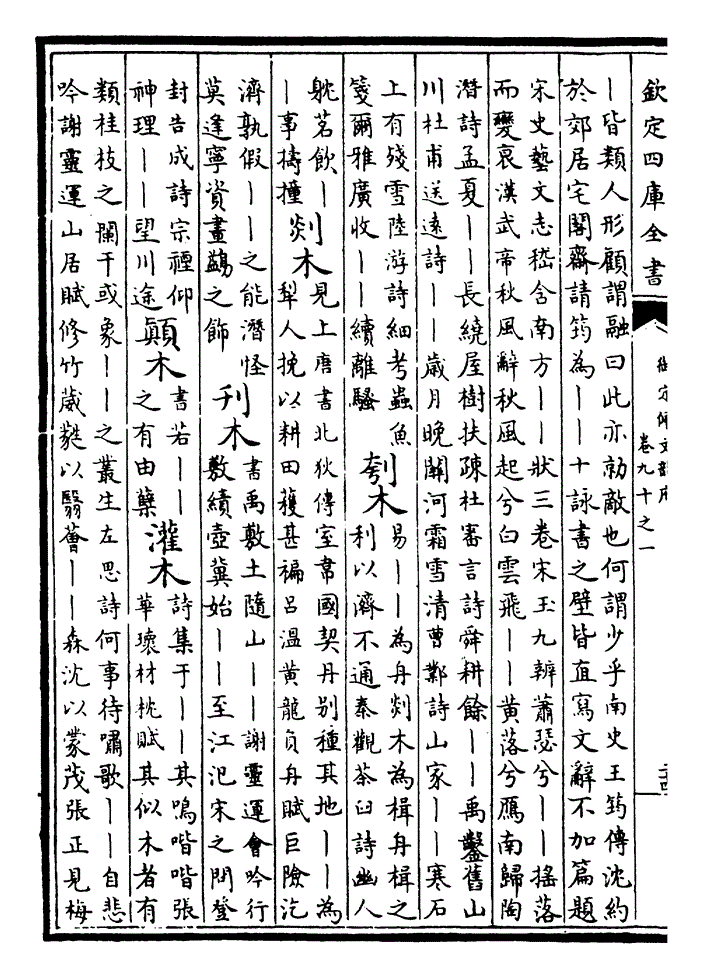 欽定四庫全書
御定佩文韻府
卷九十之一
〡皆類人形顧謂融曰此亦勍敵也何謂少乎南史王筠傳沈約
於郊居宅閣齋請筠為〡〡十詠書之壁皆直寫文辭不加篇題
宋史藝文志嵇含南方〡〡狀三卷宋玉九辨蕭瑟兮〡〡搖落
而變衰漢武帝秋風辭秋風起兮白雲飛〡〡黃落兮雁南歸陶
潛詩孟夏〡〡長繞屋樹扶疎杜審言詩舜耕餘〡〡禹鑿舊山
川杜甫送遠詩〡〡歲月晚關河霜雪清曹鄴詩山家〡〡寒石
上有殘雪陸游詩細考蟲魚
箋爾雅廣收〡〡續離騷
刳木
易〡〡為舟剡木為楫舟楫之
利以濟不通秦觀茶臼詩幽人
躭茗飲〡
〡事擣撞
剡木
見上唐書北狄傳室韋國契丹别種其地〡〡為
犁人挽以耕田穫甚褊呂溫黃龍負舟賦巨險汔
濟孰假〡〡之能潛怪
莫逢寧資畫鷁之飾
刋木
書禹敷土隨山〡〡謝靈運會吟行
敷績壺冀始〡〡至江汜宋之問登
封告成詩宗禋仰
神理〡〡望川途
顛木
書若〡〡
之有由蘖
灌木
詩集于〡〡其鳴喈喈張
華瓌材枕賦其似木者有
類桂枝之闌干或象〡〡之叢生左思詩何事待嘯歌〡〡自悲
吟謝靈運山居賦修竹葳蕤以翳薈〡〡森沈以蒙茂張正見梅